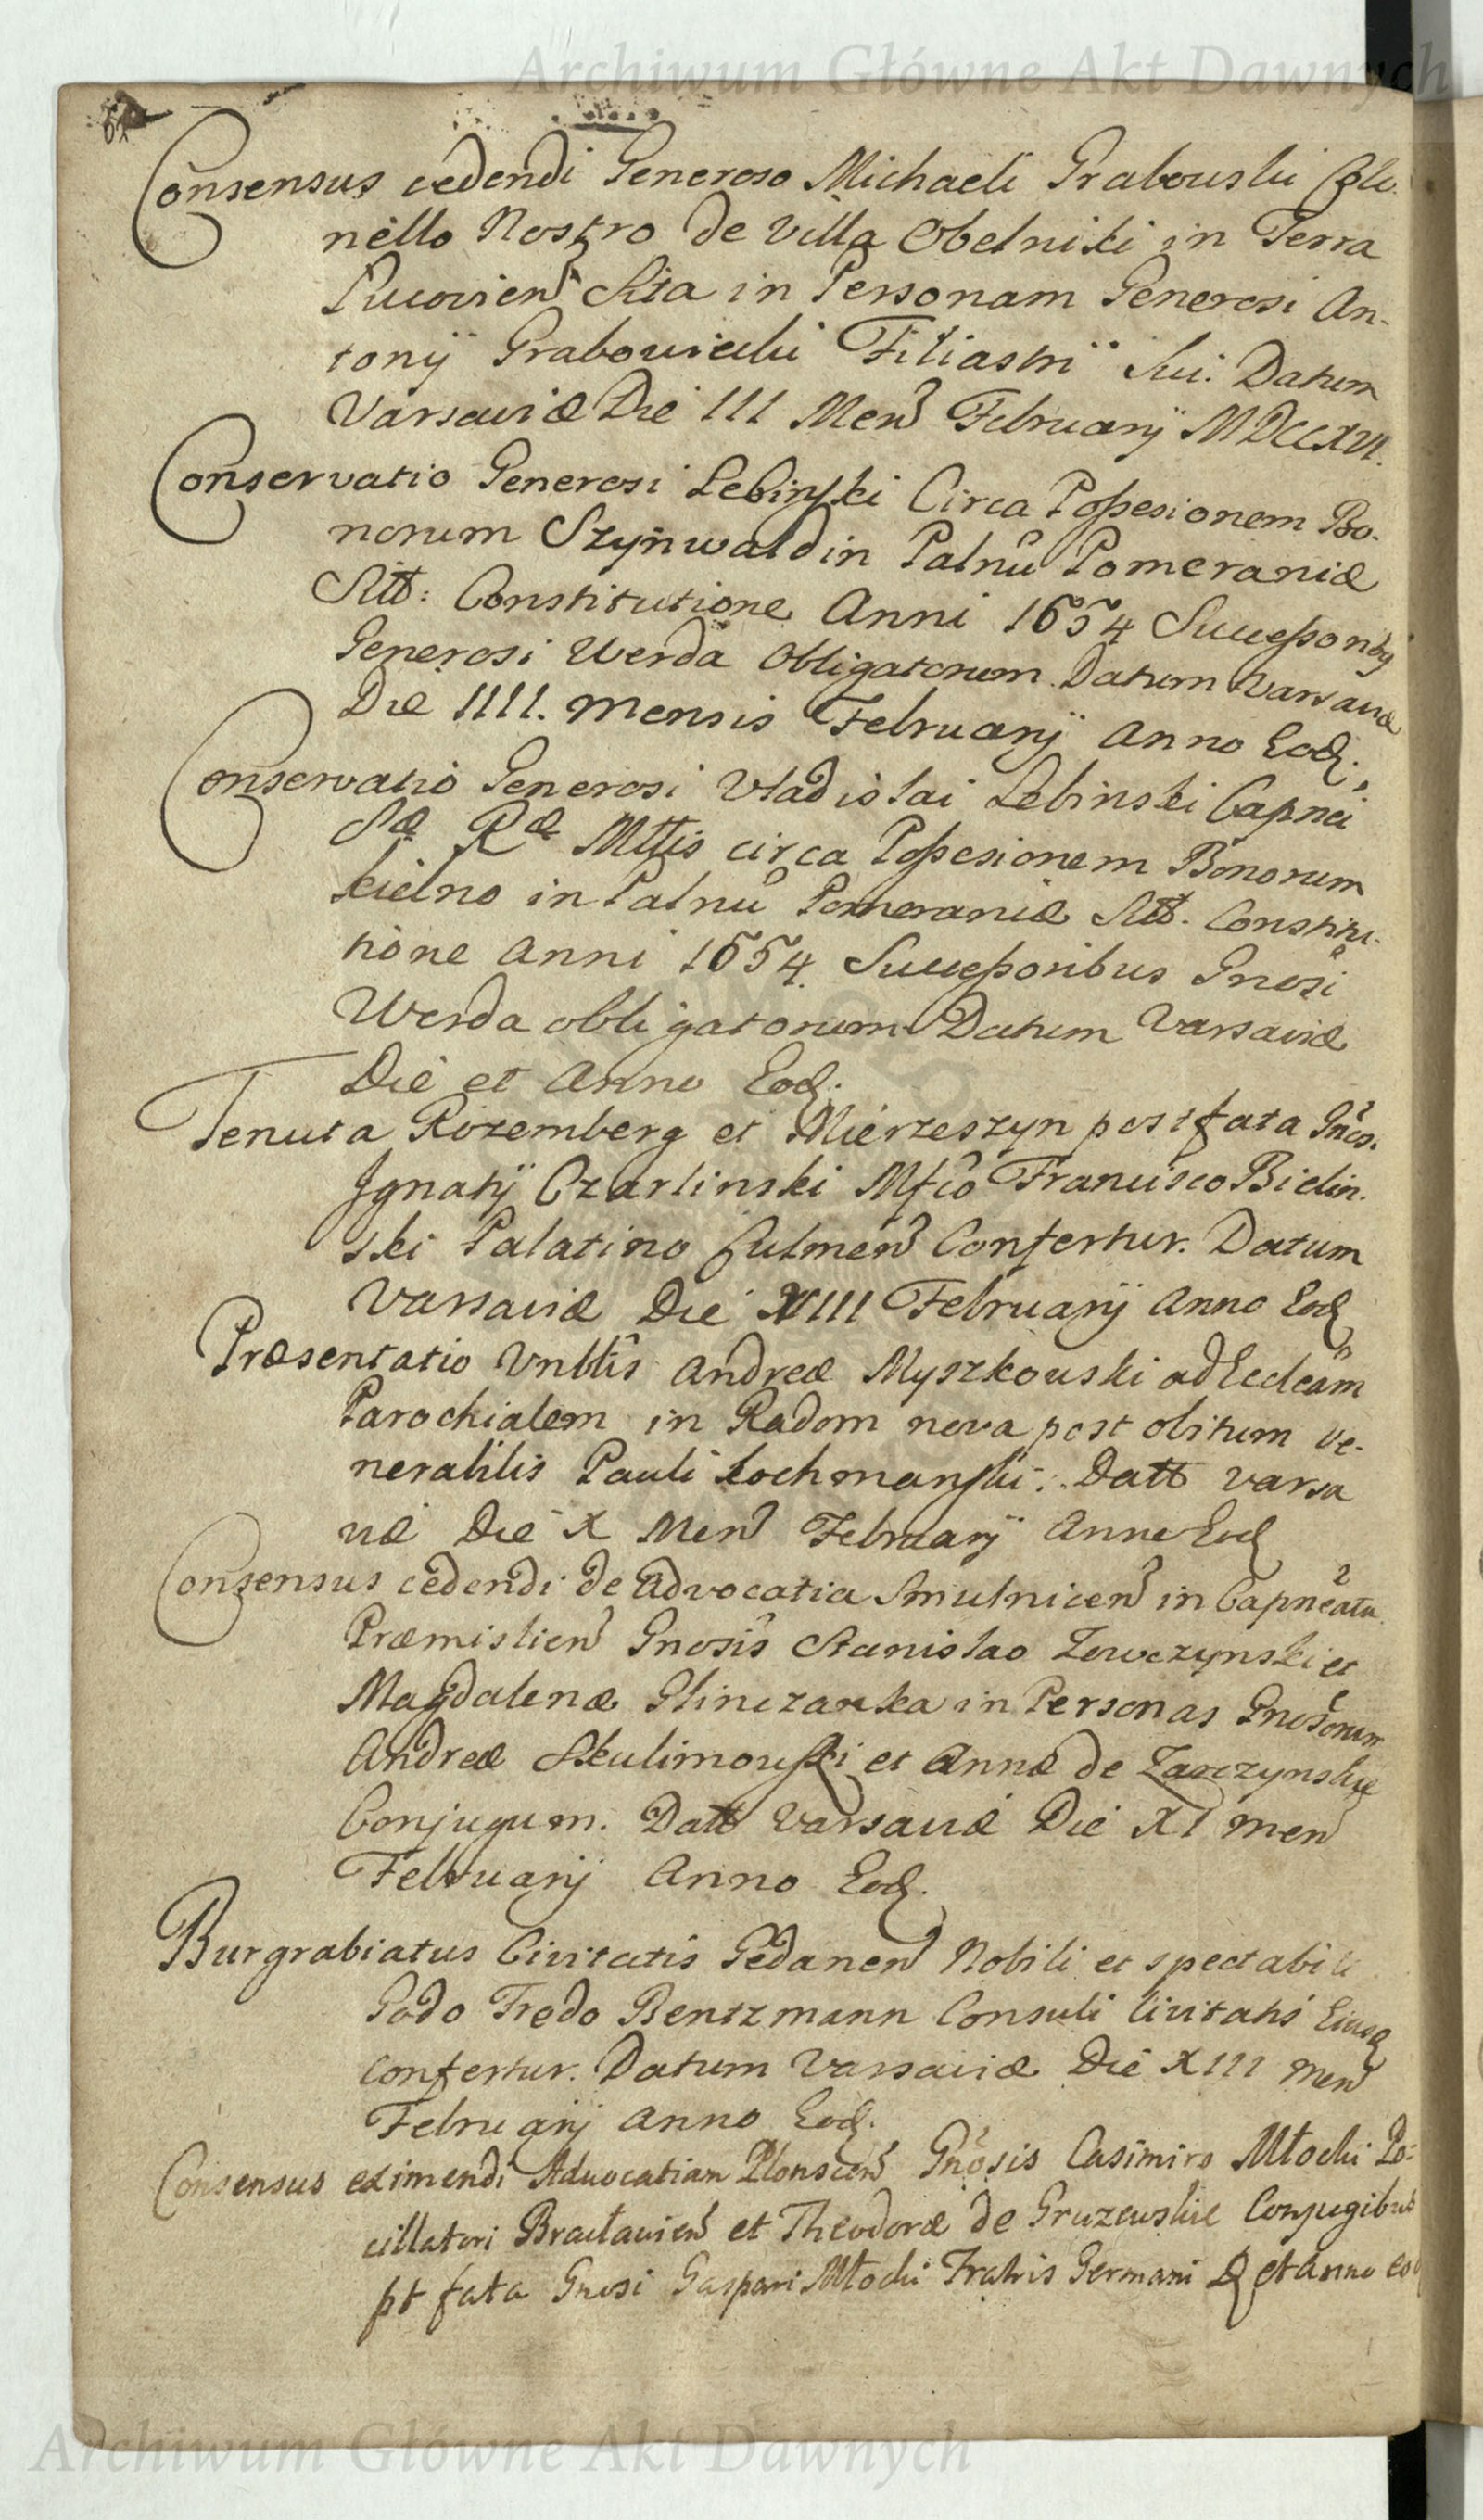 Archiwum Główne Akt Dawnych
Consensus cedendi Generoso Michaeli Grabouski Colo-
nello Nostro de Villa Obelniki in Terra
Lucovien Sita in Personam Generosi An-
tonij Grabowiecki Filiastri Sui. Datum
Varsaviæ Die III Men Februarij MDCCXVI.
Conservatio Generosi Lebinski Circa Possesionem Bo-
norum Szynwald in Palnu Pomeraniæ
Sitt: Constitutione Anni 1654 Successorib9
Generosi Werda Obligatorum. Datum Varsaviæ
Die IIII. mensis Februarij Anno Eod.
Conservatio Generosi Vladislai Lebinski Capnei
Sæ Ræ Mttis circa Possesionem Bonorum
kielno in Palnu Pomeraniæ Sitt. Constitu-
tione Anni 1654. Successoribus Gnosi
Werda obligatorum Datum Varsaviæ
Die et Anno Eod.
Tenuta Rozemberg et Mierzeszyn post fata Gnos.
Ignatij Czarlinski Mfco Francisco Bielin-
ski Palatino Culmen Confertur. Datum
Varsaviæ Die VIII Februarij Anno Eod
Præsentatio Vnblis Andreæ Myszkouski ad Eccleam
Parochialem in Radom nova post obitum Ve-
nerabilis Pauli Lochmanski. Datt Varsa
viæ Die X Men Februarij Anno Eod
Consensus cedendi de Advocatia Smulnicen in Capneatu
Præmislien Gnosis Stanislao Zowczynski et
Magdalenæ Glinczanka in Personas Gnosorum
Andreæ Skulimouski et Annæ de Zarczynskie
Conjugum. Datt Varsaviæ Die XI men
Februarij Anno Eod.
Burgrabiatus Civitatis Gedanen Nobili et spectabili
Godo Fredo Bentzmann Consuli Civitatis Eiusd
Confertur. Datum Varsaviæ Die XIII men
Februarij Anno Eod.
Consensus eximendi Advocatiam Plonscen Gnosis Casimiro Młocki Po-
cillatori Bracłavien et Theodoræ de Gruzewskie Conjugibus
pt fata Gnosi Gaspari Młocki Fratris Germani D et Anno eod
Archiwum Główne Akt Dawnych